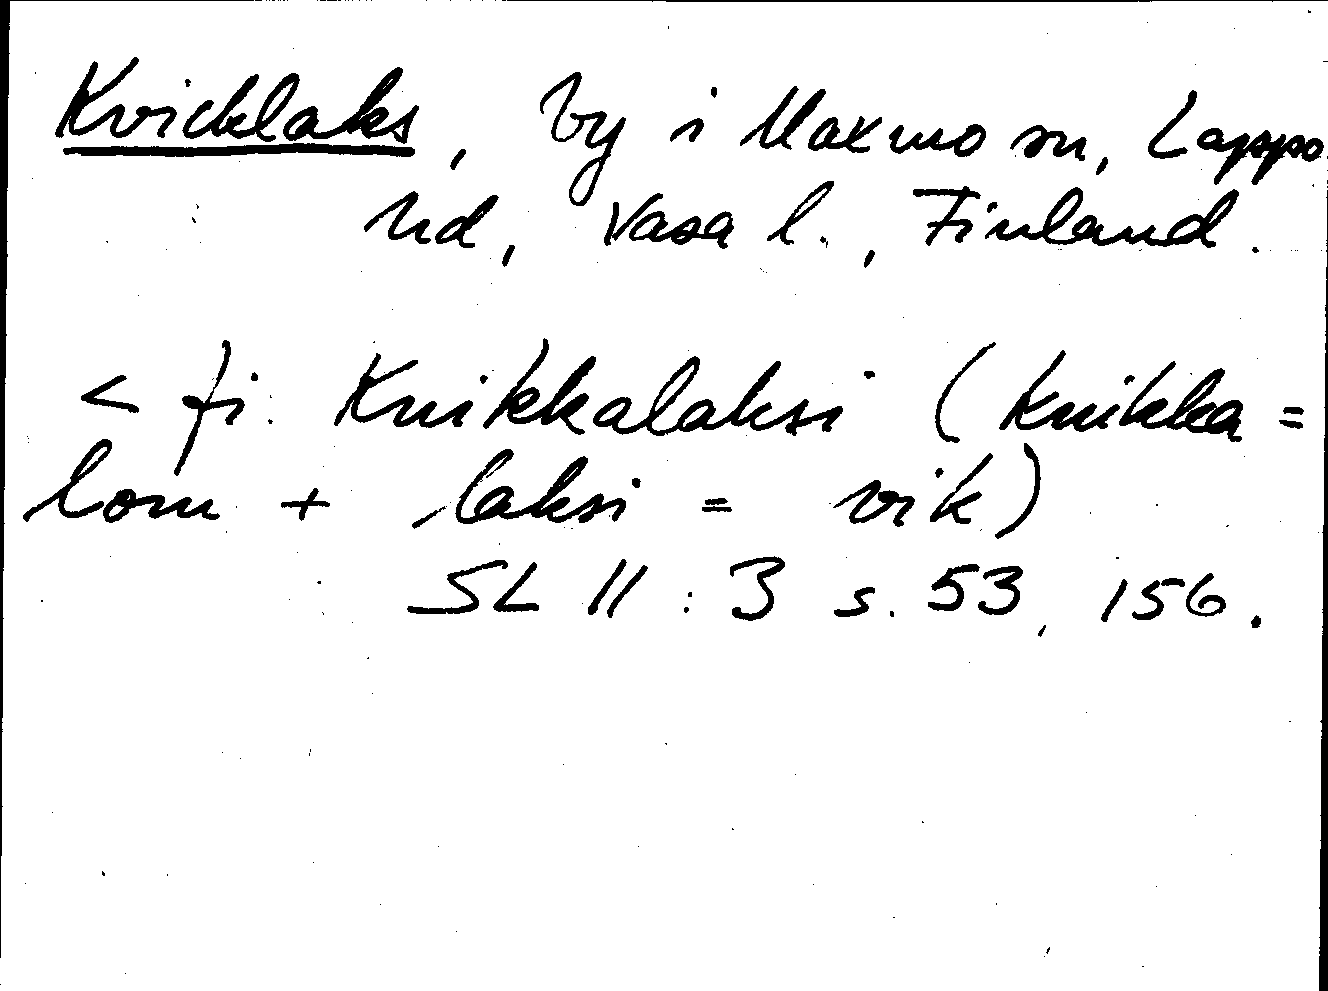 Kvicklaks, by i Maxmo sn, Lappo
hd, Vasa l., Finland.
< fi. Kuikkalaksi (kuikka =
lom + laksi = vik)
SL II:3 s. 53, 156.